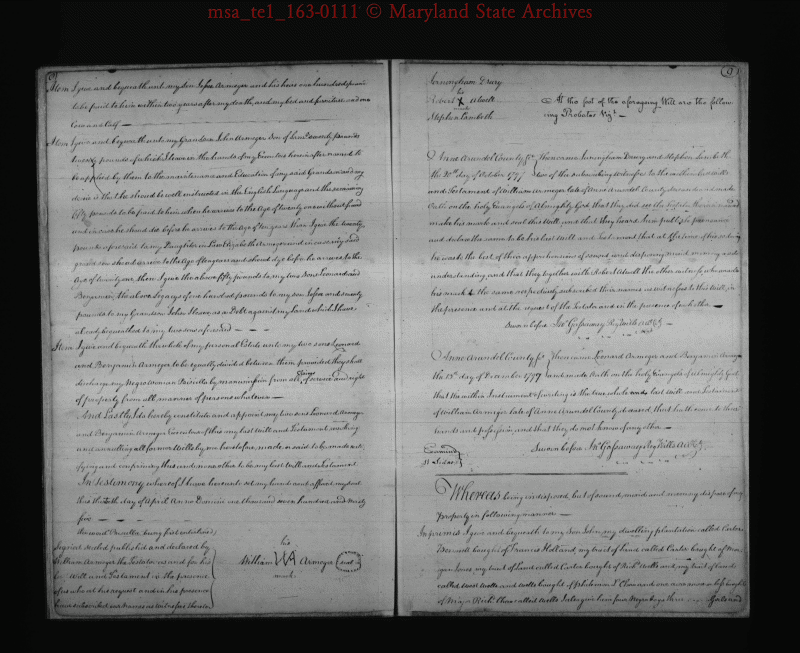 msa_te1_163-0111 © Maryland State Archives
Item I give and bequeath unto my Son Jesse Armeger and his heirs one hundred pounds
to be paid to him within two years after my death, and my bed and furniture and one
Cow and Calf —
Item I give and bequeath unto my Grandson John Armeger Son of seventy pounds
pounds of which I leave in the hands of my Executors herein after named to
be applied by them to the maintenance and Education of my said Grandson and my
desire is that he should be well instructed in the English Language and the remaining
fifty pounds to be paid to him when he arrives to the Age of twenty one without fraud
and in case he should die before he arrives to the Age of ten years then I give the twenty
pounds aforesaid to my Daughter in Law Elizabeth Armeger and in case my said
grandson should arrive to the Age of ten years and should die before he arrives to the
Age of twenty one, then I give the above fifty pounds to my two Sons Leonard and
Benjamin, the above legacys of one hundred pounds to my son Jesse and seventy
pounds to my Grandson John I leave as a Debt against my Land which I have
already bequeathed to my two sons aforesaid —
Item I give and bequeath the whole of my personal Estate unto my two sons Leonard
and Benjamin Armeger to be equally divided between them provided they shall
discharge my Negro Woman Priscilla by manumission from all claims of service and right
of property from all manner of persons whatsoever —
And Lastly I do hereby constitute and appoint my two sons Leonard Armeger
and Benjamin Armeger Executors of this my last Will and Testament revoking
and annulling all former Wills by me heretofore made ratifying and confirming this and none other to be my last Will and Testament
In Testimony whereof I have hereunto set my hand and affixed my seal
this tenth day of April Anno Domini one thousand seven hundred and ninety
five —
Signed sealed published and declared by
William Armeger the Testator as and for his
last Will and Testament in the presence
of us who at his request and in his presence
have subscribed our names as Witnesses thereto
his
William WA Armeger seal
mark
9
Jerningham Drury
his
Robert X Atwell
mark
Stephen Lambeth
At the foot of the aforegoing Will are the follow
ing Probates Vizt —
Anne Arundel County Sct Then came Jerningham Drury and Stephen Lambeth
the 30th day of October 1797 two of the subscribing witnesses to the within last will
and Testament of William Armeger late of Anne Arundel County deceased and made
Oath on the holy Evangels of Almighty God that they did see the Testator therein named
make his mark and seal this Will, and that they heard him publish pronounce
and declare the same to be his last Will and Testament that at the time of his so doing
he was to the best of their apprehensions of sound and disposing mind memory and
understanding and that they together with Robert Atwell the other witness who made
his mark to the same respectively subscribed their names as witnesses to this Will, in
the presence and at the request of the Testator and in the presence of each other —
Sworn before Jno Gassaway Reg Wills
Anne Arundel County Sct Then came Leonard Armeger and Benjamin Armeger
the 13th day of December 1797 and made Oath on the holy Evangels of Almighty God
that the within Instrument of writing is the true whole will and Testament
of William Armeger late of Anne Arundel County deceased, that hath come to their
hands and possession, and that they do not know of any other —
Sworn before Jno Gassaway Reg Wills
Examined
Whereas being indisposed, but of sound mind and memory dispose of my
property in following manner —
Inpremis I give and bequeath to my Son John, my dwelling plantation called Carter
bought of Francis Holland, my tract of land called Carter bought of
Jones, my tract of land called Carter bought of Richd Wells and my tract of land
called West Wells and Wells bought of